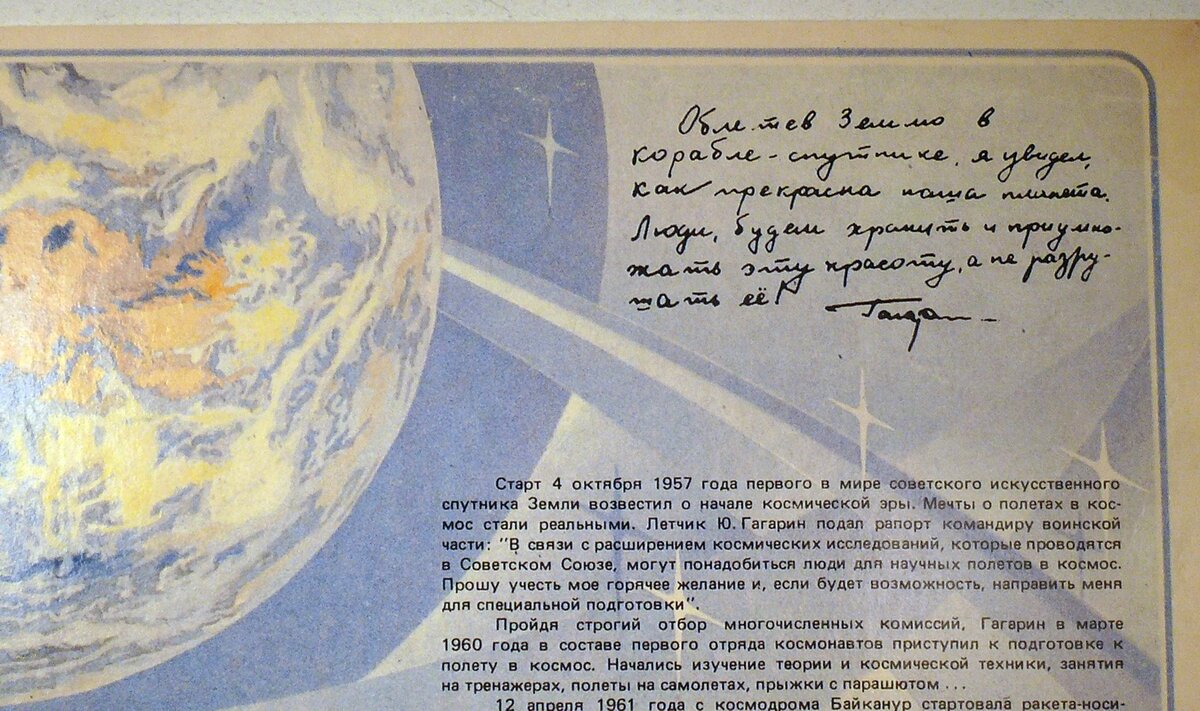 Облетев Землю в
корабле-спутнике, я увидел,
как прекрасна наша планета.
Люди, будем хранить и приумно-
жать эту красоту, а не разру-
шать её!
Гагарин
Старт 4 октября 1957 года первого в мире советского искусственного
спутника Земли возвестил о начале космической эры. Мечты о полетах в кос-
мос стали реальными. Летчик Ю. Гагарин подал рапорт командиру воинской
части: "В связи с расширением космических исследований, которые проводятся
в Советском Союзе, могут понадобиться люди для научных полетов в космос.
Прошу учесть мое горячее желание и, если будет возможность, направить меня
для специальной подготовки".
Пройдя строгий отбор многочисленных комиссий, Гагарин в марте
1960 года в составе первого отряда космонавтов приступил к подготовке к
полету в космос. Начались изучение теории и космической техники, занятия
на тренажерах, полеты на самолетах, прыжки с парашютом ...
12 апреля 1961 года с космодрома Байканур стартовала ракета-носи-